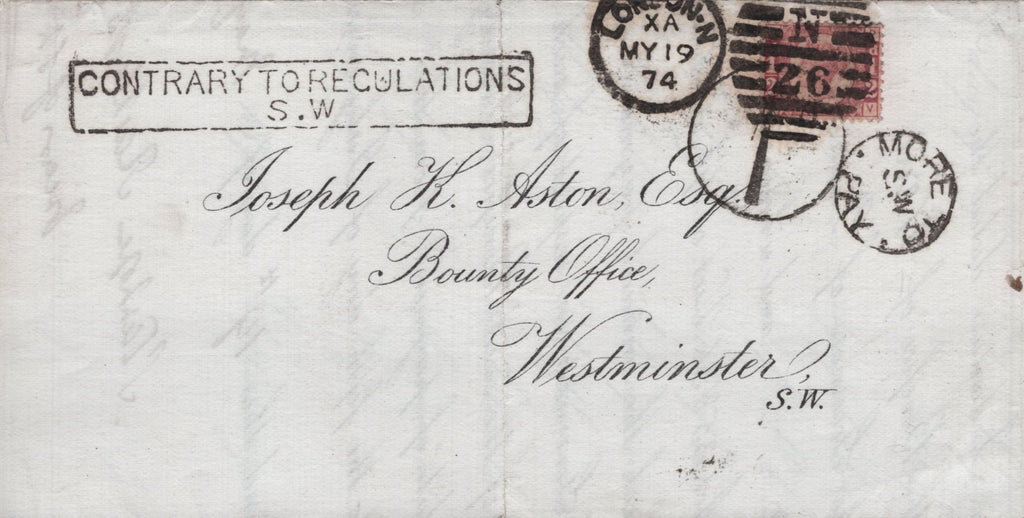 CONTRARY TO REGULATIONS
S.W
LONDON·N
XA
MY 19
74
N
26
V
1
MORE TO PAY
S.W
Joseph K. Aston, Esq.
Bounty Office,
Westminster,
S.W.